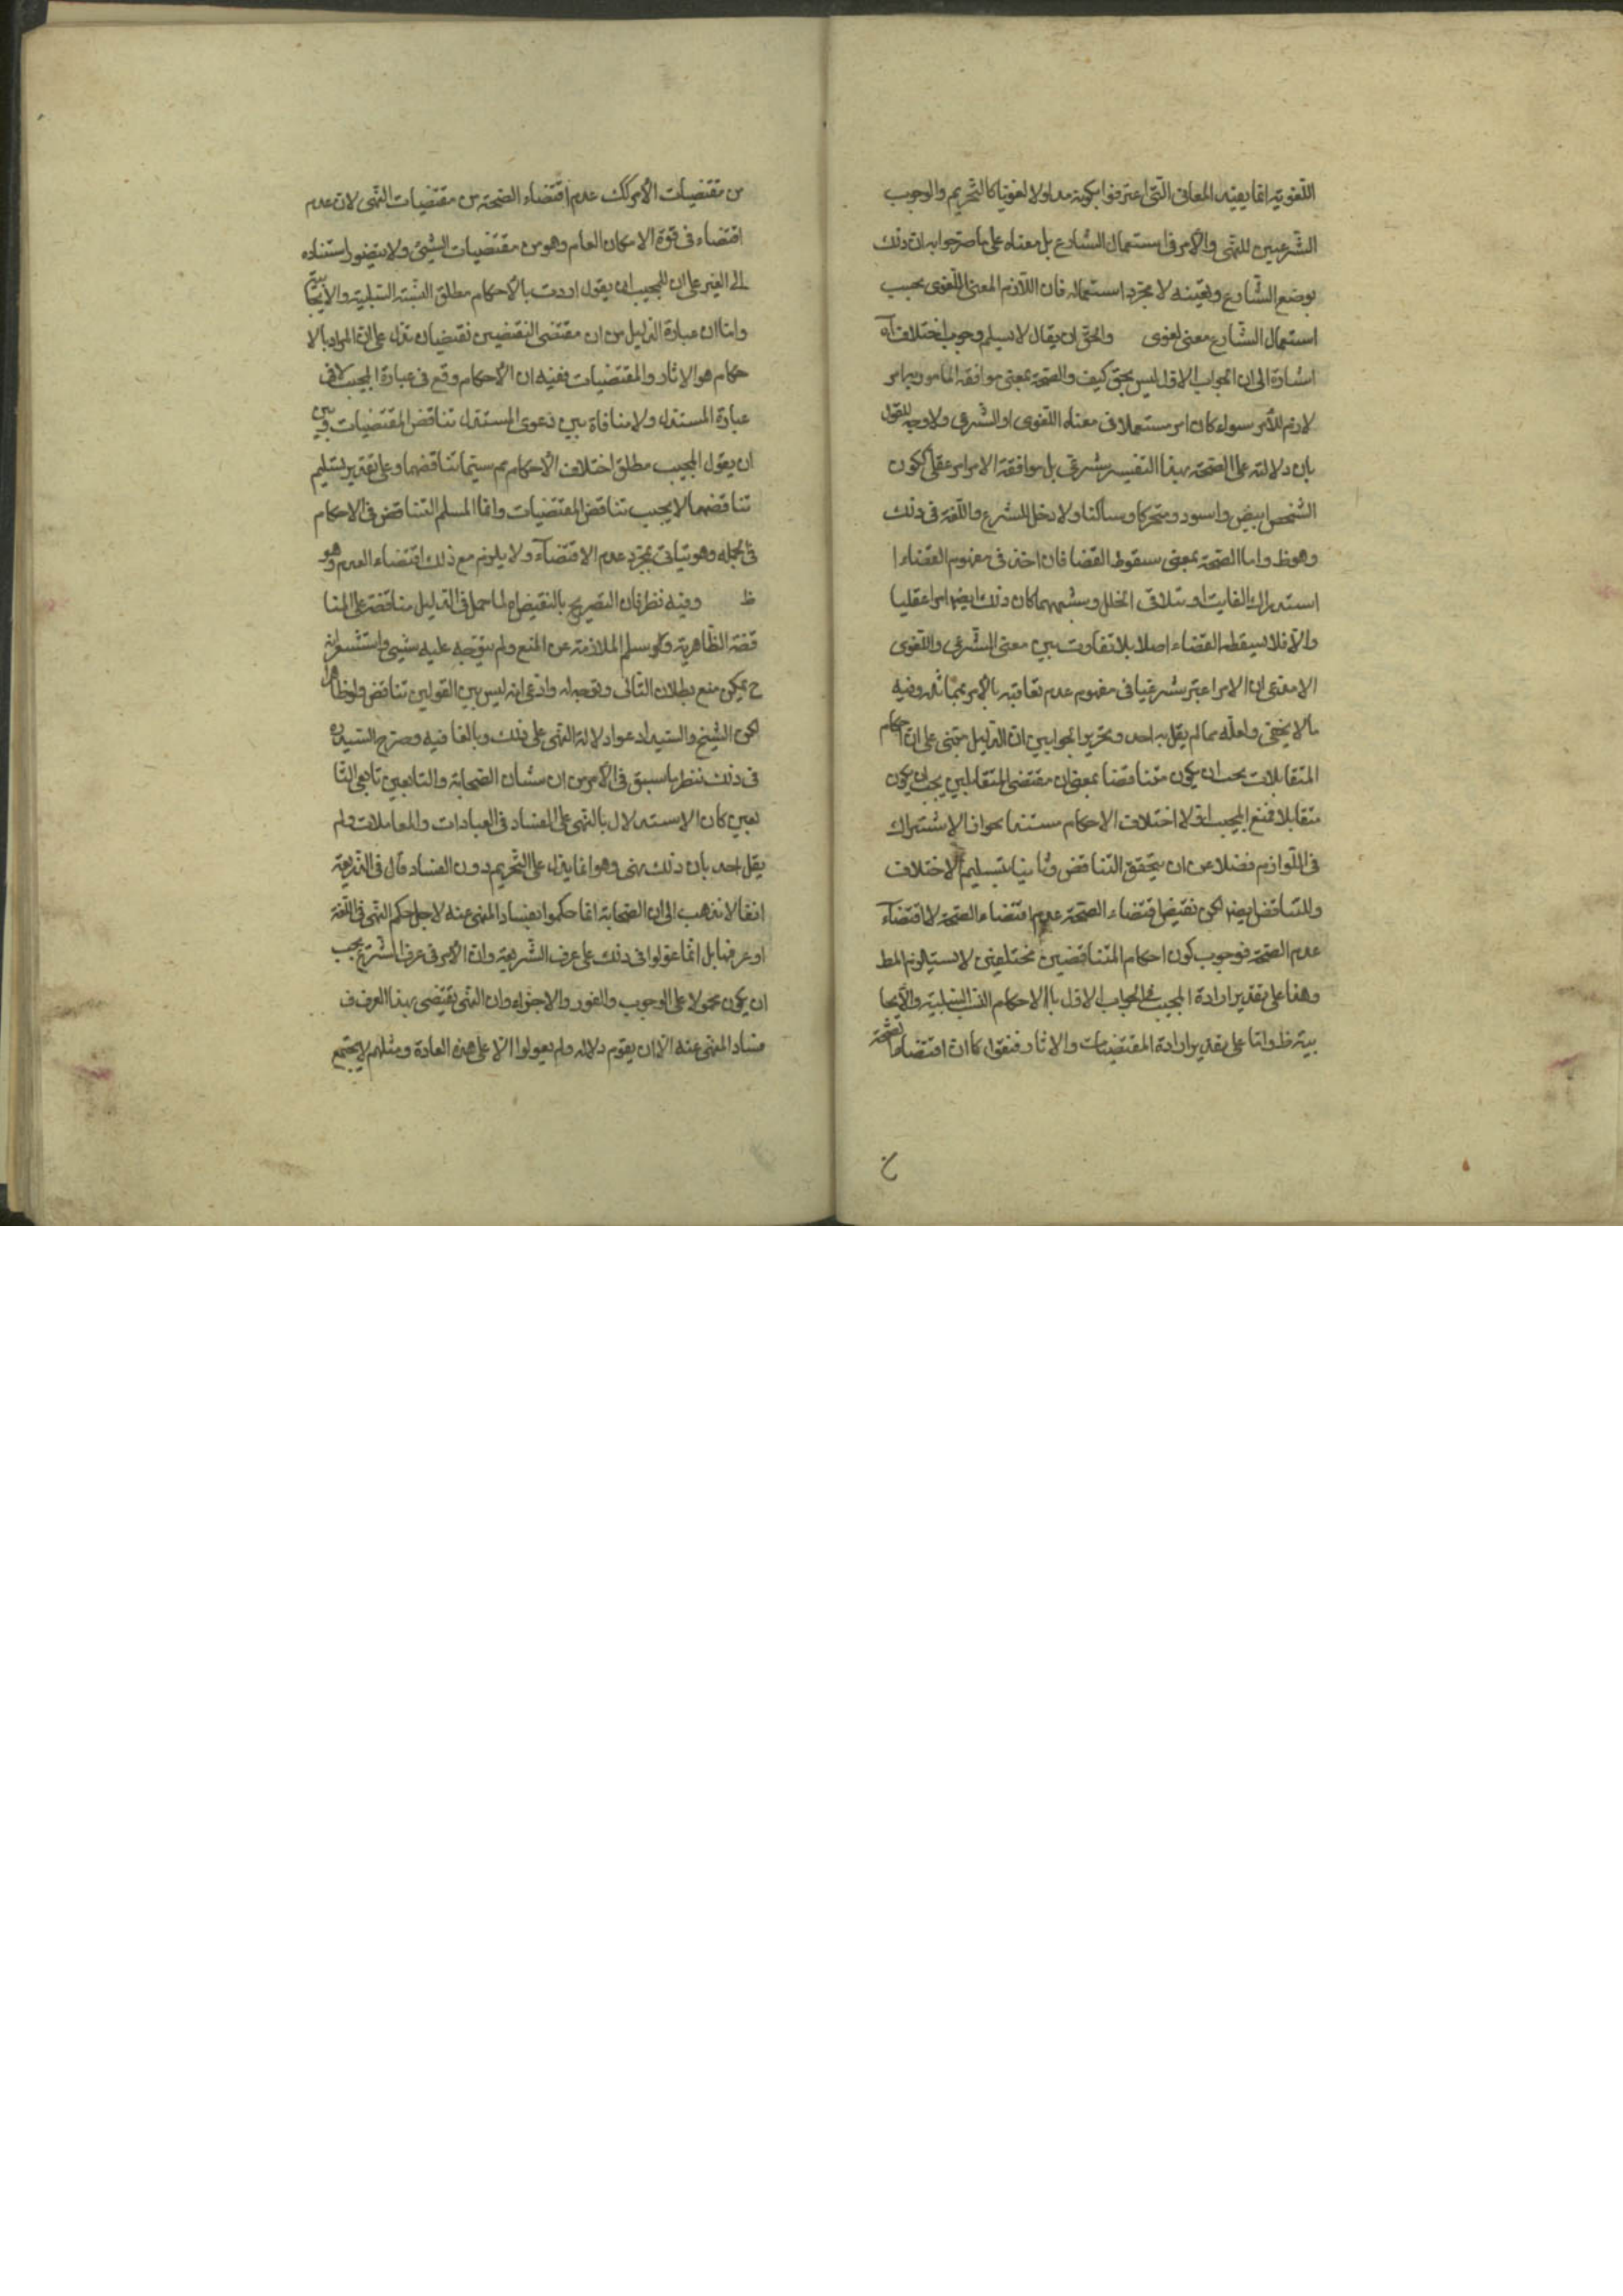 اللّغويّة انّما يفيد المعانى الّتى اعترفوا بكونه مدلولا لغويّا كالتّحريم والوجوب
الشّرعيين للنّهى والأمر فى استعمال الشّارع بل معناه على ما صرّحوا به ان ذلك
بوضع الشّارع وتعيّنه لا بمجرّد استعماله فان اللّازم المعنى اللّغوى بحسب
استعمال الشّارع معنى لغوى والحقّ ان يقال لا نسلم وجوب اختلاف آه
اشارة الى ان الجواب الاوّل ليس بحقّ كيف والصّحة بمعنى موافقة المأمور به امر
لازم للأمر سواء كان امر مستعملا فى معناه اللّغوى او الشّرعى ولا وجه للقول
بان دلالته على الصّحة بهذا التفسير شرعىّ بل موافقة الامر امر عقلىّ ككون
الشّخص ابيض واسود ومتحركا وساكنا ولا دخل للشرع واللّغة فى ذلك
وهو ظ واما الصّحة بمعنى سقوط القضا فان اخذ فى مفهوم القضاء ا
استدراك الفايت او تلافى الخلل وشبههما كان ذلك ايضا امرا عقليا
والّا فلا يسقطه القضاء اصلا بلا تفاوت بين معنى الشّرعى واللّغوى
الا مع ان الامر اعتبر شرعيا فى مفهوم عدم تعاقبه بالأمر بمماثله وفيه
ما لا يخفى ولعلّه مما لم يقل به احد وتحرير الجوابين انّ الدّليل مبنى على انّ احكام
المتقابلات يجب ان يكون متناقضا بمعنى ان مقتضى المتقابلين يجب ان يكون
متقابلا فمنع المجيب اوّلا اختلاف الاحكام مستندا بجواز الاشتراك
فى اللّوازم فضلا عن ان يتحقق التناقض وثانيا بتسليم الاختلاف
والتناقض ايضا لكن نقيض اقتضاء الصّحة عدم اقتضاء الصّحة لا اقتضآء
عدم الصّحة فوجوب كون احكام المتناقضين مختلفين لا يستلزم المط
وهذا على تقدير ارادة المجيب فى الجواب الاوّل بالاحكام النّسب السّلبيّة والأيجا
بيّة ظ وامّا على تقدير ارادة المقتضيات والاثار فنقول كما ان اقتضاء الصّحة
من مقتضيات الأمر كك عدم اقتضاء الصّحة من مقتضيات النّهى لان عدم
اقتضاء فى قوّة الامكان العام وهو من مقتضيات الشّيئ ولا يتصّور استناده
الى الغير على ان للمجيب ان يقول اردت بالأحكام مطلق النّسبة السّلبيّة والأيجابيّة
وامّا ان عبارة الدّليل من ان مقتضى النقيضين نقيضان تدلّ على انّ المراد بالا
حكام هو الاثار والمقتضيات ففيه ان الأحكام وقع فى عبارة المجيب لا فى
عبارة المستدل ولا منافاة بين دعوى المستدل تناقض المقتضيات وبين
ان يقول المجيب مطلق اختلاف الأحكام مم سيّما تناقضهما وعلى تقدير تسليم
تناقضهما لا يجب تناقض المقتضيات وانّما المسلم التناقض فى الاحكام
فى الجمله وهو يتأتى بمجرّد عدم الاقتضآء ولا يلزم مع ذلك اقتضاء العدم وهو
ظ وفيه نظر فان التصريح بالنقيض لما حمل فى الدّليل مناقضة على المنا
قضة الظّاهرية ولو سلم الملازمة عن المنع ولم يتوجّه عليه شيئ واستشعر انه
ح يمكن منع بطلان التالى وتوجيه له وادّعى انه ليس بين القولين تناقض ولو ظاهرا
لكن الشّيخ والسّيد ادعوا دلالة النّهى على ذلك وبالغا فيه وصرح السّيد ره
فى ذلك نظر ما سبق فى الأمر من ان شأن الصّحابة والتابعين تابعى التّا
بعين كان الاستدلال بالنّهى على الفساد فى العبادات والمعاملات ولم
يقل احد بان ذلك نهى وهو انما يدل على التّحريم دون الفساد قال فى الذّريعة
انّما لا نذهب الى ان الصّحابة انّما حكموا بفساد المنهى عنه لاجل حكم النّهى فى اللّغة
او عرفها بل انّما عوّلوا فى ذلك على عرف الشّريعة وان الأمر فى عرف الشّرع يجب
ان يكون محمولا على الوجوب والفور والاجزاء وان النّهى يقتضى بهذا العرف ف
فساد المنهى عنه الّا ان يقوم دلاله ولم يعولوا الّا على هذه العادة ومثلهم لا يجتمع